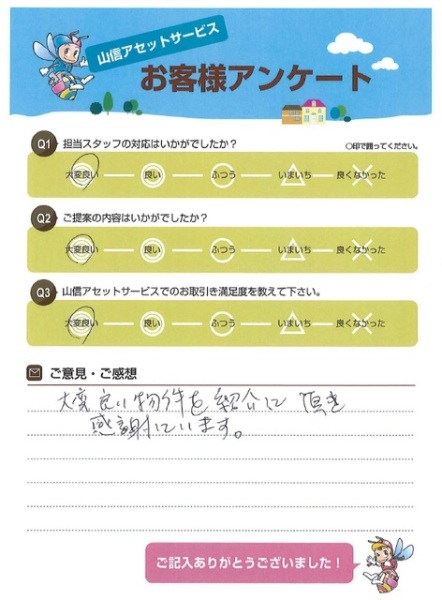 山信アセットサービス
お客様アンケート
Q1 担当スタッフの対応はいかがでしたか？
○印で囲ってください。
大変良い 良い ふつう いまいち 良くなかった
Q2 ご提案の内容はいかがでしたか？
大変良い 良い ふつう いまいち 良くなかった
Q3 山信アセットサービスでのお取引き満足度を教えて下さい。
大変良い 良い ふつう いまいち 良くなかった
ご意見・ご感想
大変良い物件を紹介して頂き
感謝しています。
ご記入ありがとうございました！